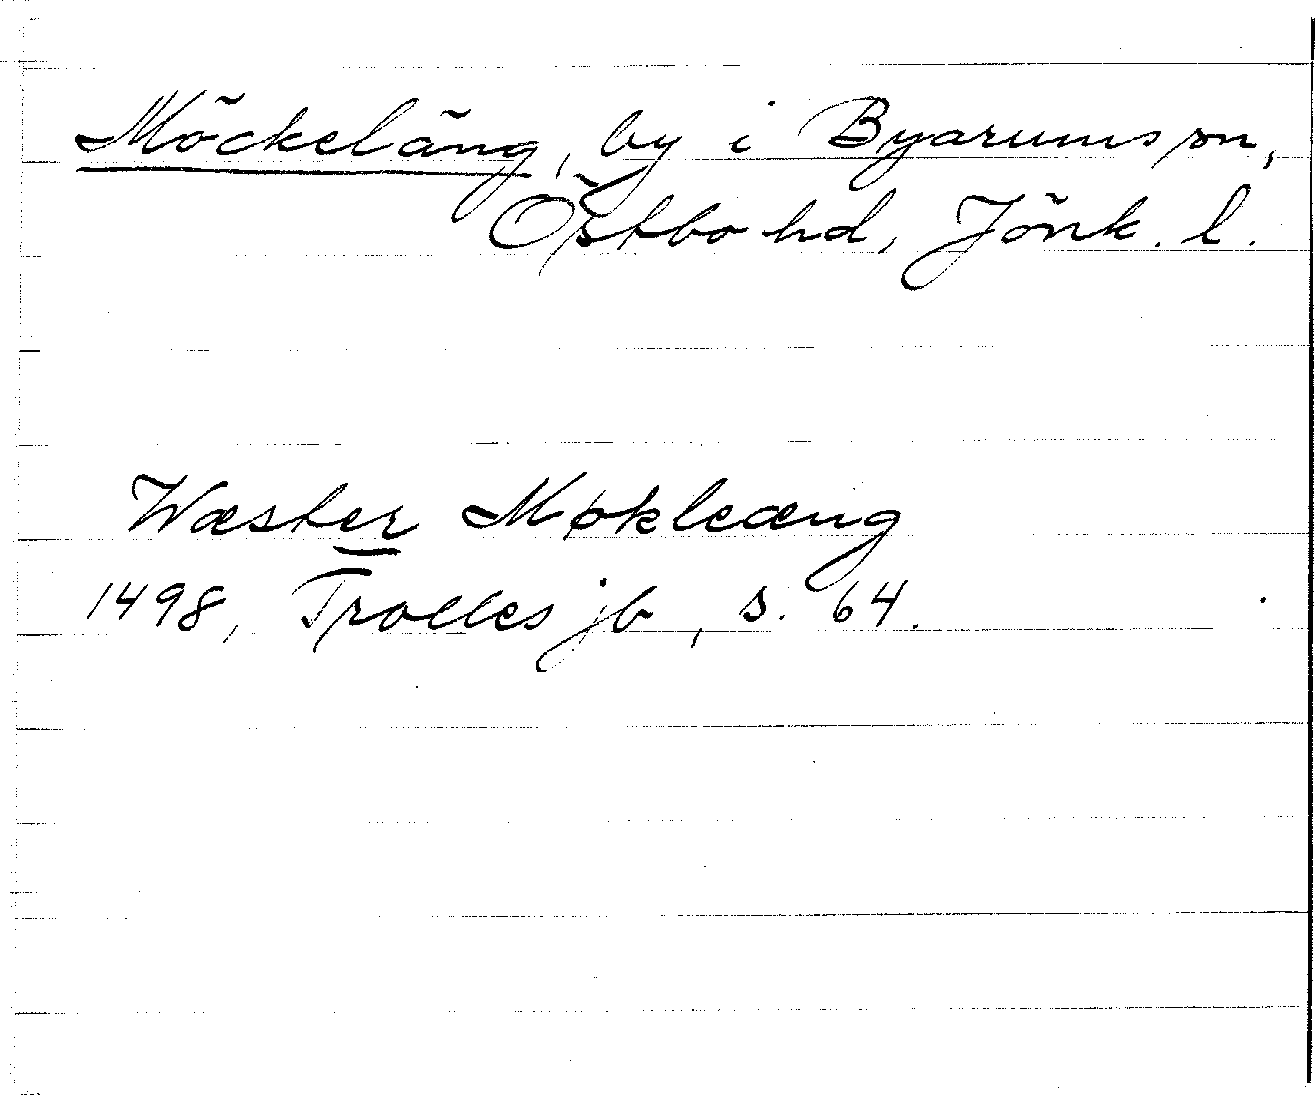 Möckeläng, by i Byarums sn,
Östbo hd, Jönk. l.
Wæster Møkleæng
1498, Trolles jb, s. 64.